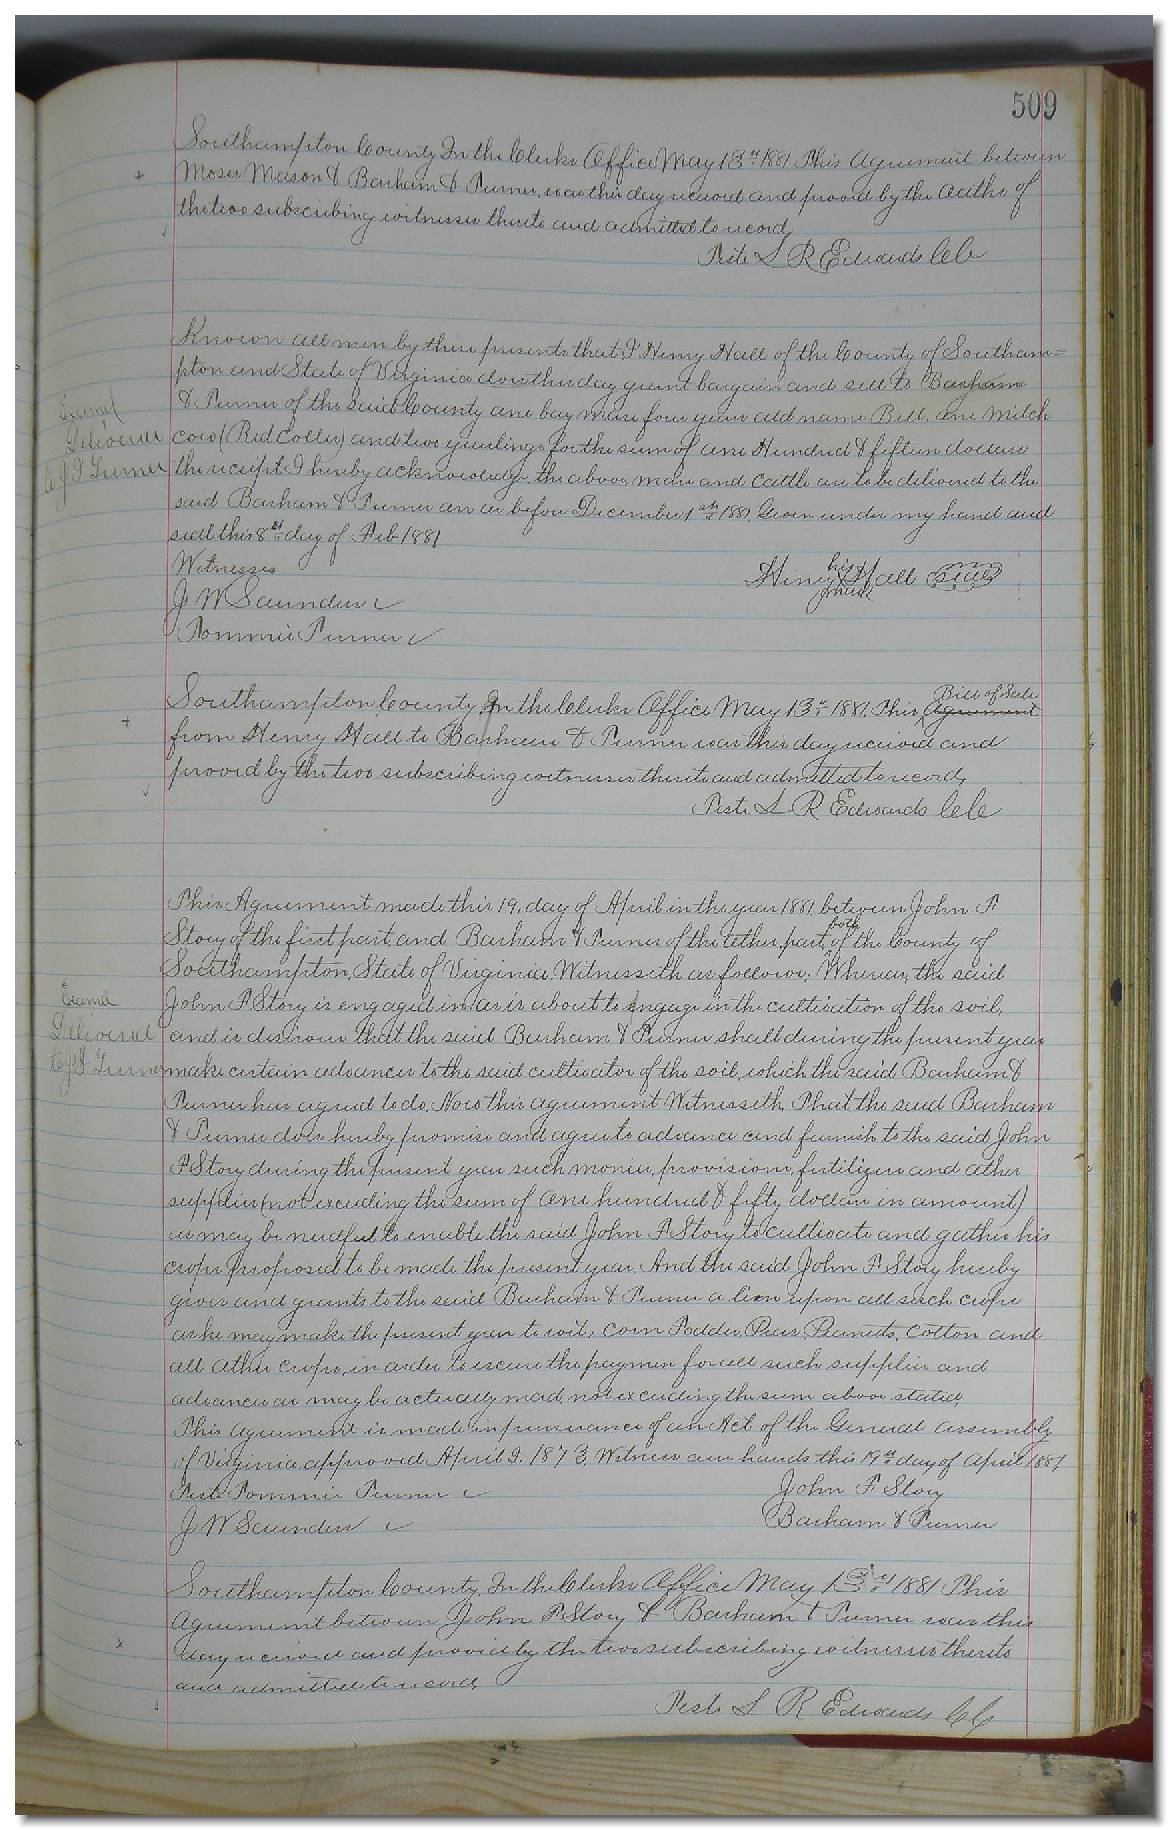 509
Southampton County In the Clerks Office May 13th 1881 This Agreement between
Moses Mason & Barham & Turner was this day received and proved by the oaths of
the two subscribing witnesses thereto and admitted to record
Teste L R Edwards CC
Known all men by these presents that I Henry Hall of the County of Southam=
pton and State of Virginia does this day grant bargain and sell to Barham
& Turner of the said County one bay mare four years old name Bell, one milch
cow (Red Coller) and two yearlings for the sum of one Hundred & fifteen dollars
the receipt I hereby acknowledge, the above mare and cattle are to be delivered to the
said Barham & Turner on or before December 1st 1881. Given under my hand and
seal this 8th day of Feb 1881
Examd
Delivered
to J I Turner
Witnesses
Henry his X mark Hall seal
J W Saunders
Tommie Turner
Southampton County, In the Clerks Office May 13th 1881. This Agreement Bill of Sale
from Henry Hall to Barham & Turner was this day received and
proved by the two subscribing witnesses thereto and admitted to record,
Teste L R Edwards CC
This Agreement made this 19, day of April in the year 1881 between John F
Story of the first part, and Barham & Turner of the other part, both of the County of
Southampton, State of Virginia. Witnesseth as follows: Whereas, the said
John F Story is engaged in or is about to engage in the cultivation of the soil,
and is desirous that the said Barham & Turner shall during the present year
make certain advances to the said cultivator of the soil, which the said Barham &
Turner has agreed to do. Now this agreement Witnesseth, That the said Barham
& Turner does hereby promise and agree to advance and furnish to the said John
F Story during the present year such monies, provisions, fertilizers and other
supplies (not exceding the sum of one hundred & fifty dollars in amount)
as may be needful to enable the said John F Story to cultivate and gather his
crops proposed to be made the present year. And the said John F Story hereby
gives and grants to the said Barham & Turner a lien upon all such crops
as he may make the present year to wit; corn Fodder, Peas, Peanuts, cotton and
all other crops, in order to secure the paymen for all such supplies and
advances as may be actually mad, not exceeding the sum above stated,
This agreement is made in pursuance of an Act of the General assembly
of Virginia approved April 2. 1873, Witness our hands this 19th day of April 1881
Examd
Delivered
to J I Turner
Test Tommie Turner
John F Story
J W Saunders
Barham & Turner
Southampton County, In the Clerks Office May 13th 1881 This
Agreement between John F Story & Barham & Turner was this
day received and proved by the two subscribing witnesses thereto
and admitted to record,
Teste L R Edwards CC